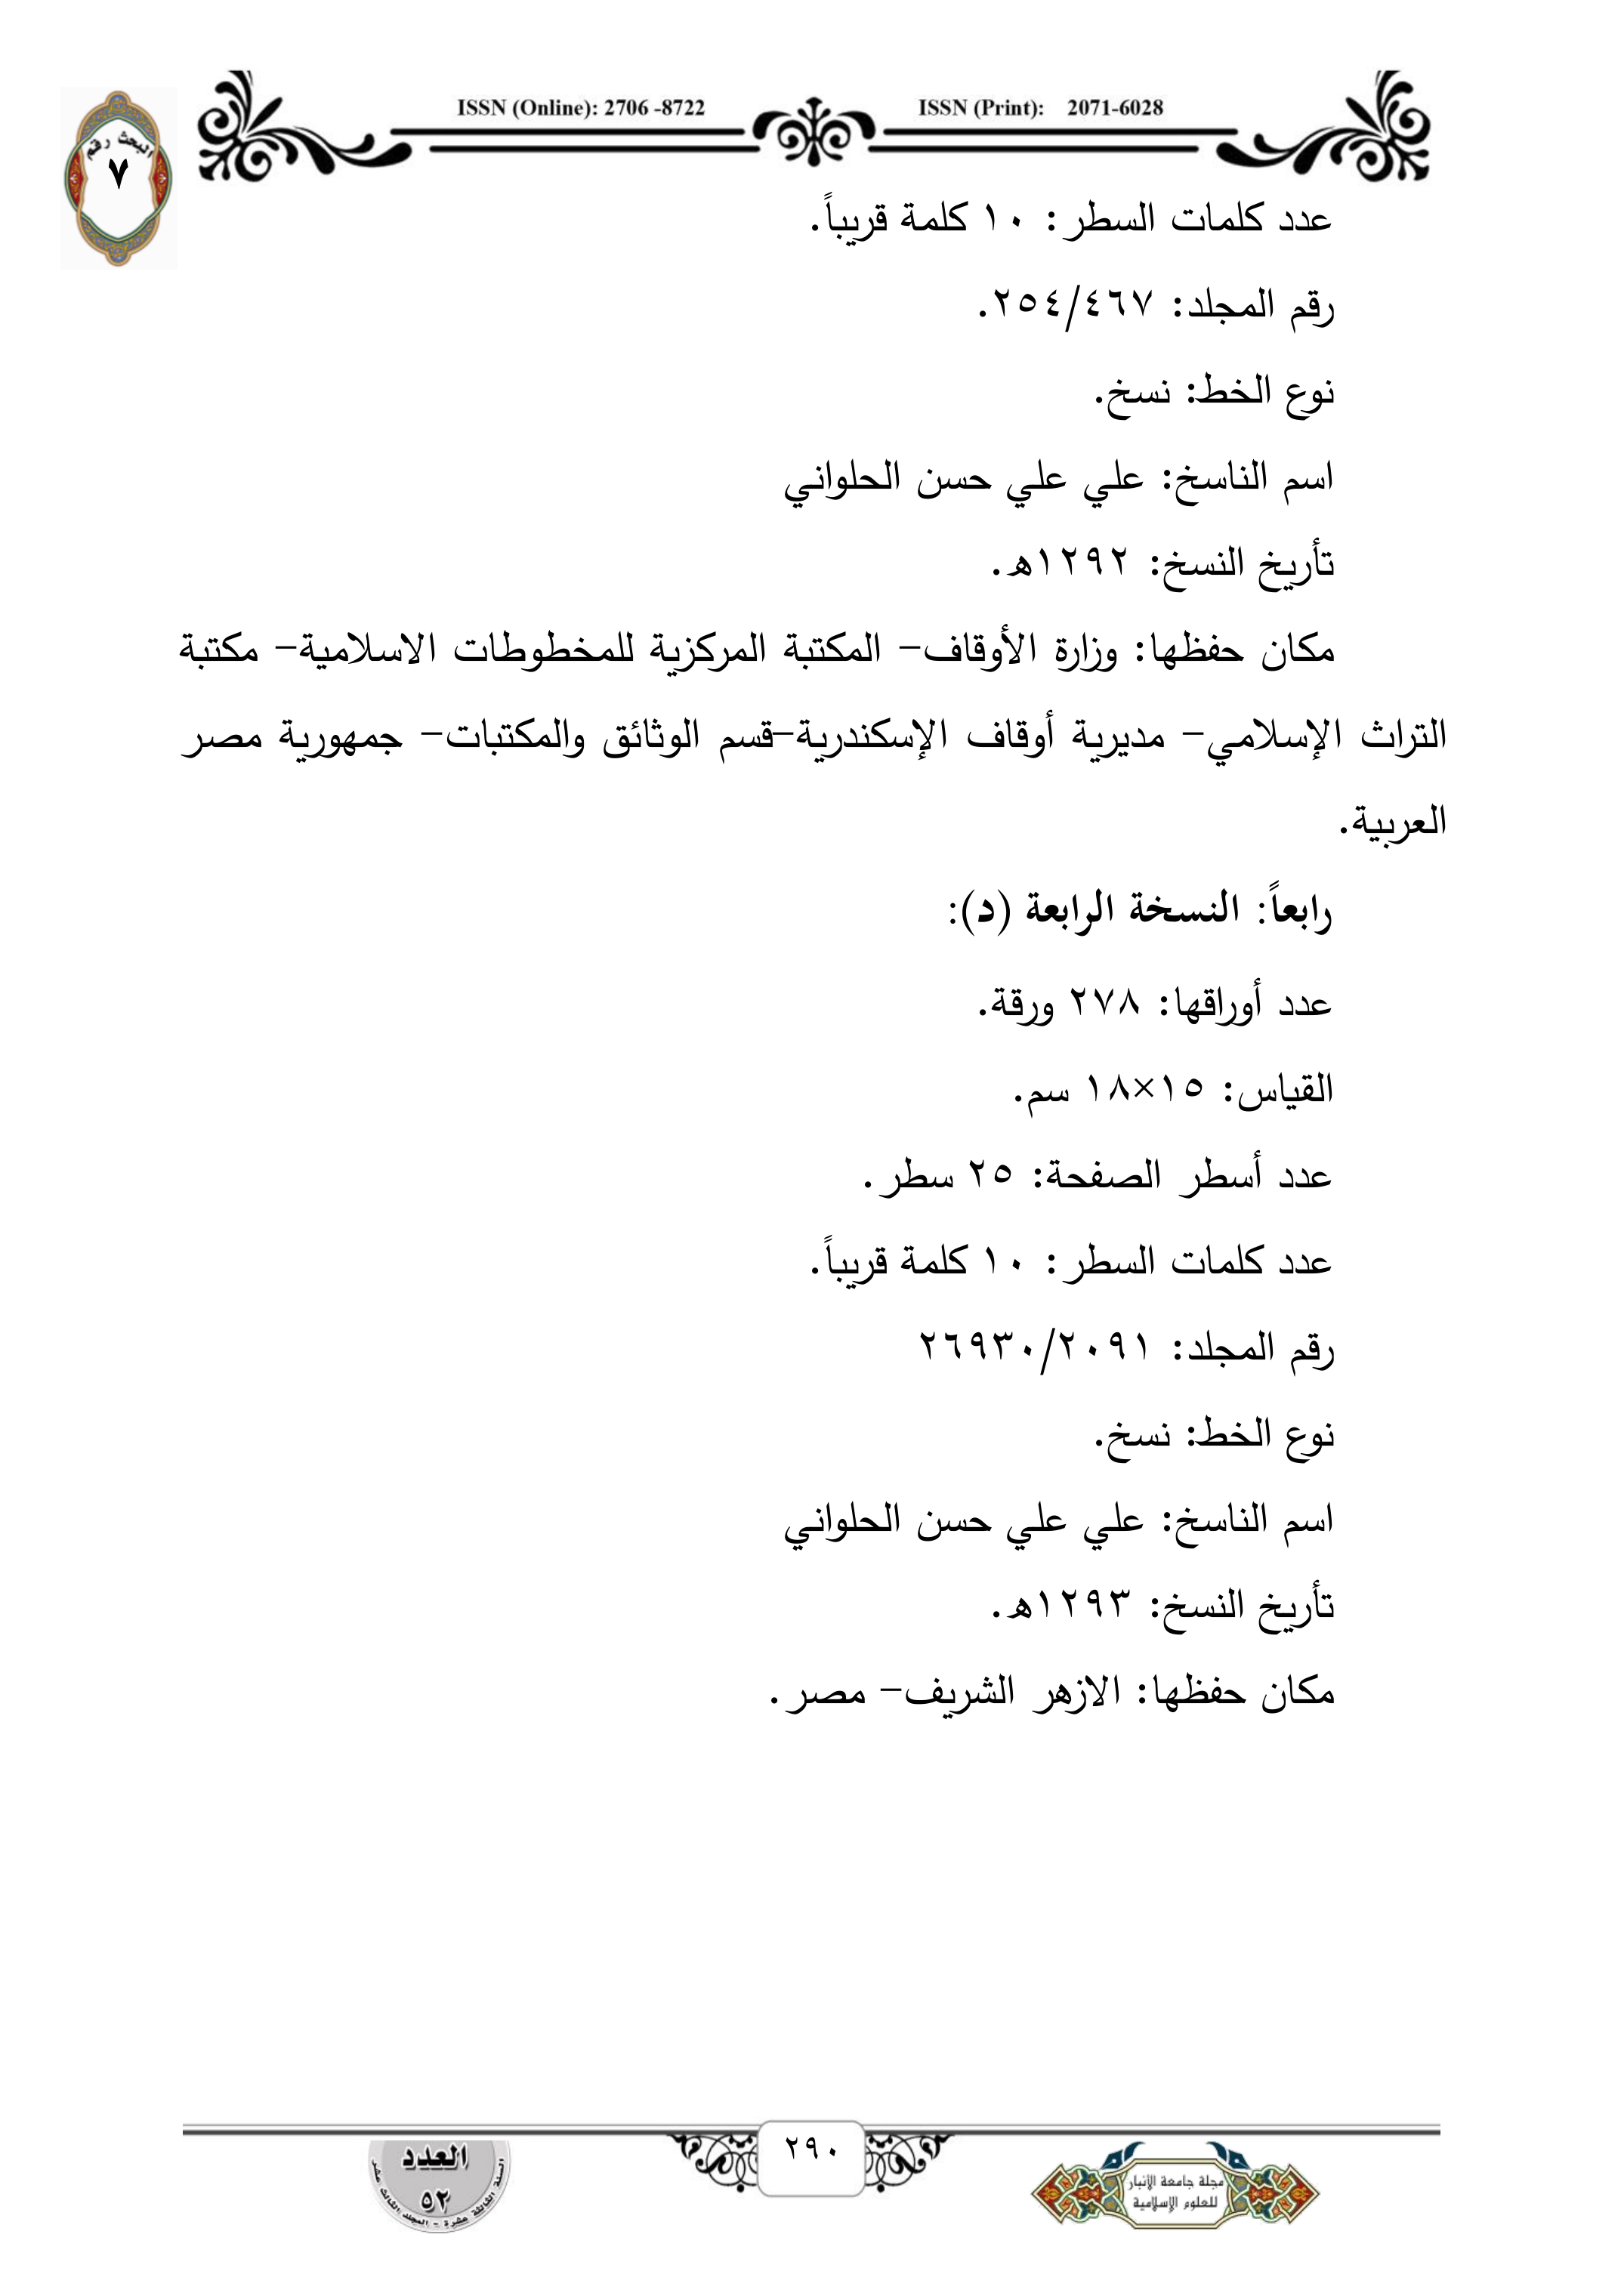 ISSN (Online): 2706 -8722 ISSN (Print): 2071-6028
البحث رقم
٧
عدد كلمات السطر: ١٠ كلمة قريباً.
رقم المجلد: ٢٥٤/٤٦٧.
نوع الخط: نسخ.
اسم الناسخ: علي علي حسن الحلواني
تأريخ النسخ: ١٢٩٢هـ.
مكان حفظها: وزارة الأوقاف- المكتبة المركزية للمخطوطات الاسلامية- مكتبة
التراث الإسلامي- مديرية أوقاف الإسكندرية-قسم الوثائق والمكتبات- جمهورية مصر
العربية.
رابعاً: النسخة الرابعة (د):
عدد أوراقها: ٢٧٨ ورقة.
القياس: ١٥×١٨ سم.
عدد أسطر الصفحة: ٢٥ سطر.
عدد كلمات السطر: ١٠ كلمة قريباً.
رقم المجلد: ٢٦٩٣٠/٢٠٩١
نوع الخط: نسخ.
اسم الناسخ: علي علي حسن الحلواني
تأريخ النسخ: ١٢٩٣هـ.
مكان حفظها: الازهر الشريف- مصر.
مجلة جامعة الانبار
للعلوم الإسلامية
٢٩٠
العدد
٥٢
السنة الثالثة عشرة - المجلد الثالث عشر